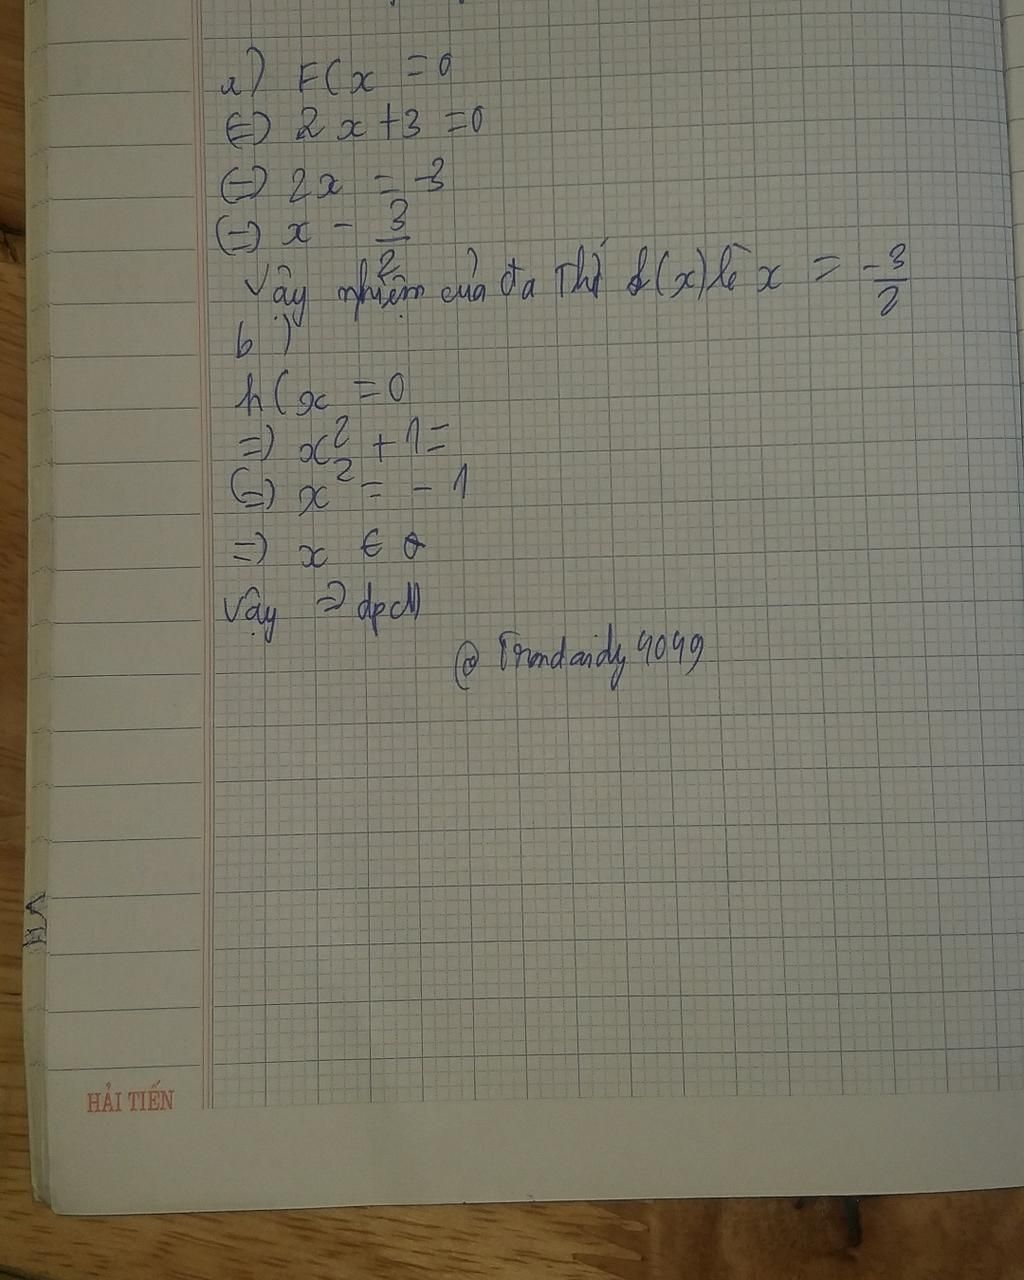 a) F(x = 0
(=) 2x + 3 = 0
(=) 2x = -3
(=) x - 3/2
Vậy nghiệm của đa Thí f(x) là x = -3/2
b)
h(x = 0
=) x² + 1 =
(=) x² = - 1
=) x ∈ ∅
Vậy => đpcM
@Trandaidy4049
HẢI TIẾN